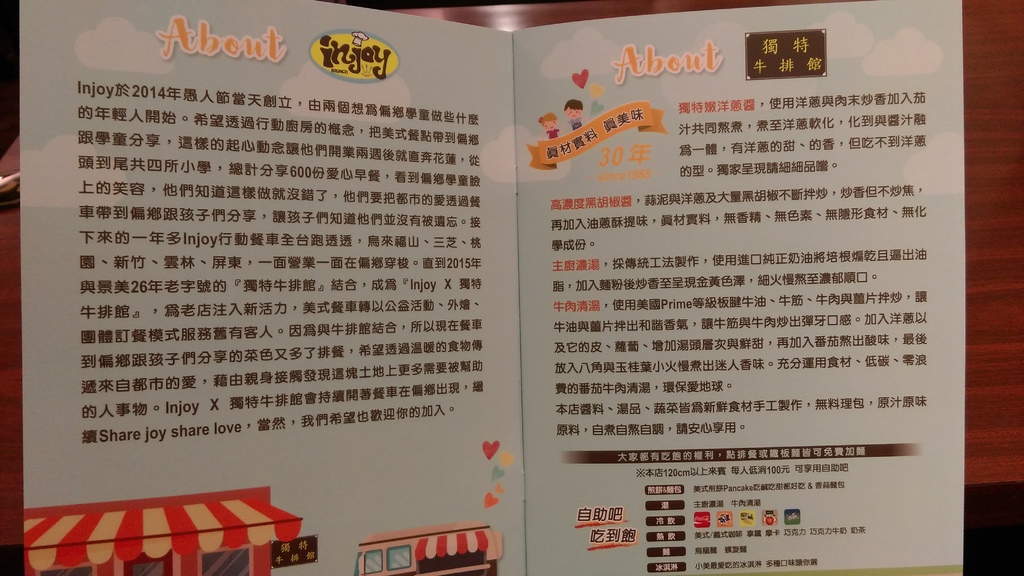 About
injoy
BRUNCH
Injoy於2014年愚人節當天創立，由兩個想為偏鄉學童做些什麼
的年輕人開始。希望透過行動廚房的概念，把美式餐點帶到偏鄉
跟學童分享，這樣的起心動念讓他們開業兩週後就直奔花蓮，從
頭到尾共四所小學，總計分享600份愛心早餐，看到偏鄉學童臉
上的笑容，他們知道這樣做就沒錯了，他們要把都市的愛透過餐
車帶到偏鄉跟孩子們分享，讓孩子們知道他們並沒有被遺忘。接
下來的一年多Injoy行動餐車全台跑透透，烏來福山、三芝、桃
園、新竹、雲林、屏東，一面營業一面在偏鄉穿梭。直到2015年
與景美26年老字號的『獨特牛排館』結合，成為『Injoy X 獨特
牛排館』，為老店注入新活力，美式餐車轉以公益活動、外燴、
團體訂餐模式服務舊有客人。因為與牛排館結合，所以現在餐車
到偏鄉跟孩子們分享的菜色又多了排餐，希望透過溫暖的食物傳
遞來自都市的愛，藉由親身接觸發現這塊土地上更多需要被幫助
的人事物。Injoy X 獨特牛排館會持續開著餐車在偏鄉出現，繼
續Share joy share love，當然，我們希望也歡迎你的加入。
獨特
牛排館
About
獨特
牛排館
真材實料 真美味
30年
since1985
獨特嫩洋蔥醬，使用洋蔥與肉末炒香加入茄
汁共同熬煮，煮至洋蔥軟化，化到與醬汁融
為一體，有洋蔥的甜、的香，但吃不到洋蔥
的型。獨家呈現請細細品嚐。
高濃度黑胡椒醬，蒜泥與洋蔥及大量黑胡椒不斷拌炒，炒香但不炒焦，
再加入油蔥酥提味，真材實料，無香精、無色素、無隱形食材、無化
學成份。
主廚濃湯，採傳統工法製作，使用進口純正奶油將培根煸乾且逼出油
脂，加入麵粉後炒香至呈現金黃色澤，細火慢熬至濃郁順口。
牛肉清湯，使用美國Prime等級板腱牛油、牛筋、牛肉與薑片拌炒，讓
牛油與薑片拌出和諧香氣，讓牛筋與牛肉炒出彈牙口感。加入洋蔥以
及它的皮、蘿蔔、增加湯頭層次與鮮甜，再加入番茄熬出酸味，最後
放入八角與玉桂葉小火慢煮出迷人香味。充分運用食材、低碳、零浪
費的番茄牛肉清湯，環保愛地球。
本店醬料、湯品、蔬菜皆為新鮮食材手工製作，無料理包，原汁原味
原料，自煮自熬自調，請安心享用。
大家都有吃飽的權利，點排餐或鐵板麵皆可免費加麵
※本店120cm以上來賓 每人低消100元 可享用自助吧
自助吧
吃到飽
煎餅&麵包 美式煎餅Pancake吃鹹吃甜都好吃 & 香蒜麵包
湯 主廚濃湯 牛肉清湯
冷飲
熱飲 美式/義式咖啡 拿鐵 摩卡 巧克力 巧克力牛奶 奶茶
麵 烏龍麵 蝶旋麵
冰淇淋 小美最愛吃的冰淇淋 多種口味讓你選